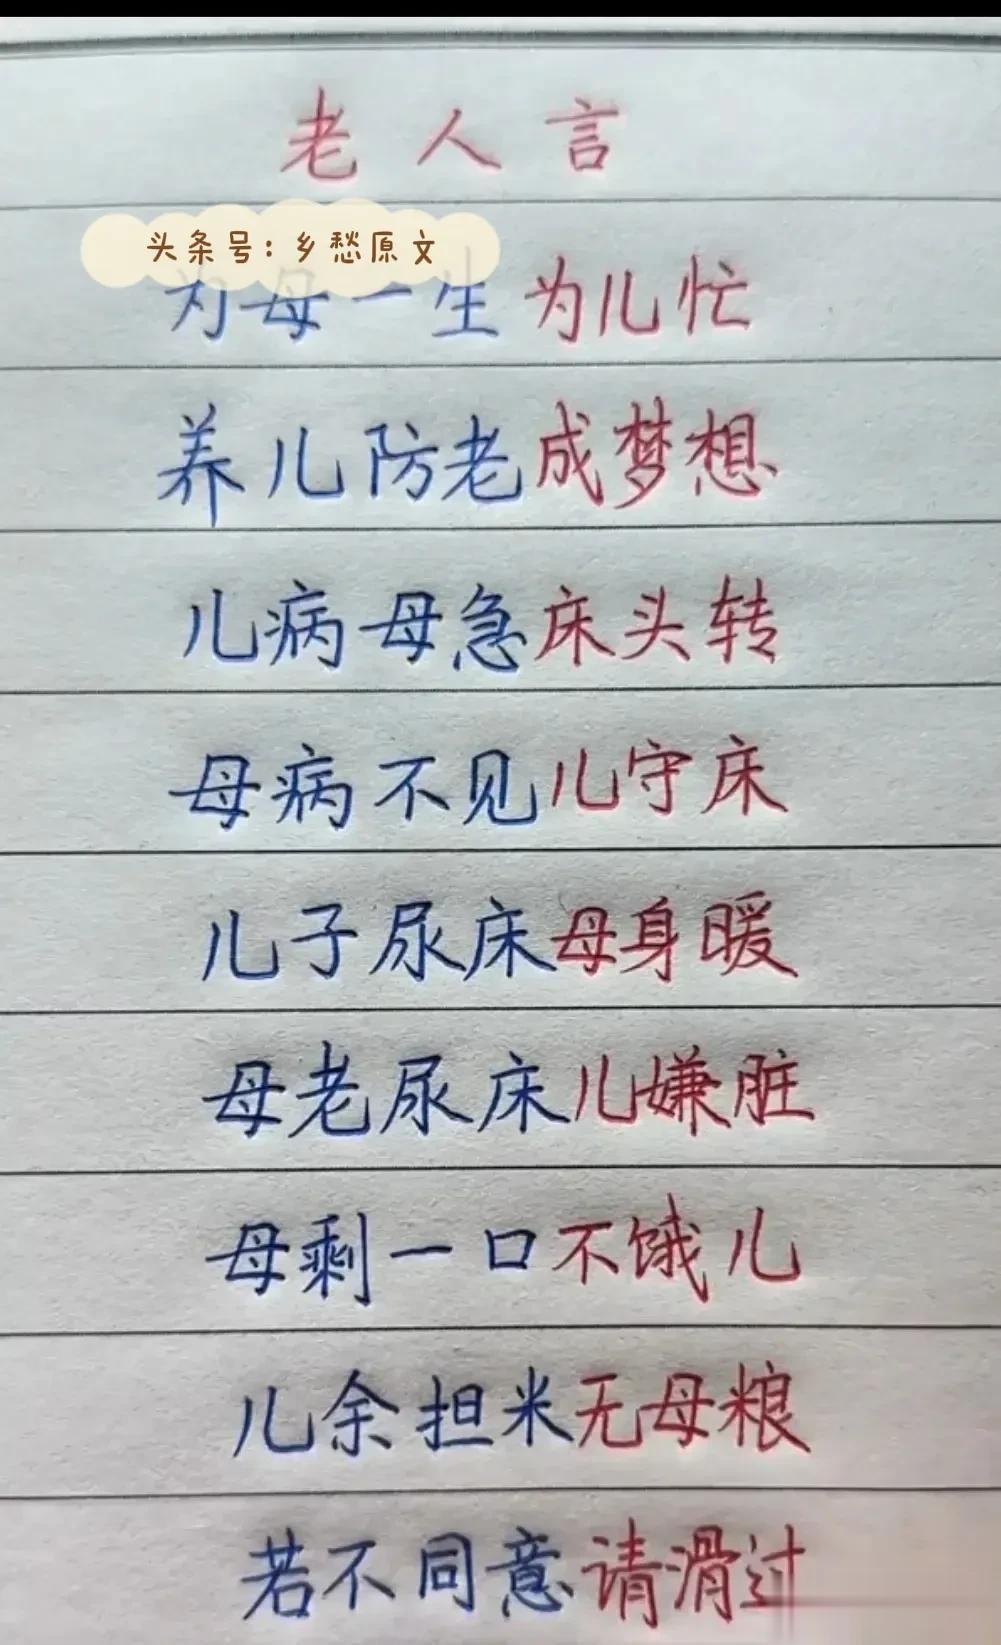 老人言
头条号:乡愁原文
为母一生为儿忙
养儿防老成梦想
儿病母急床头转
母病不见儿守床
儿子尿床母身暖
母老尿床儿嫌脏
母剩一口不饿儿
儿余担米无母粮
若不同意请滑过